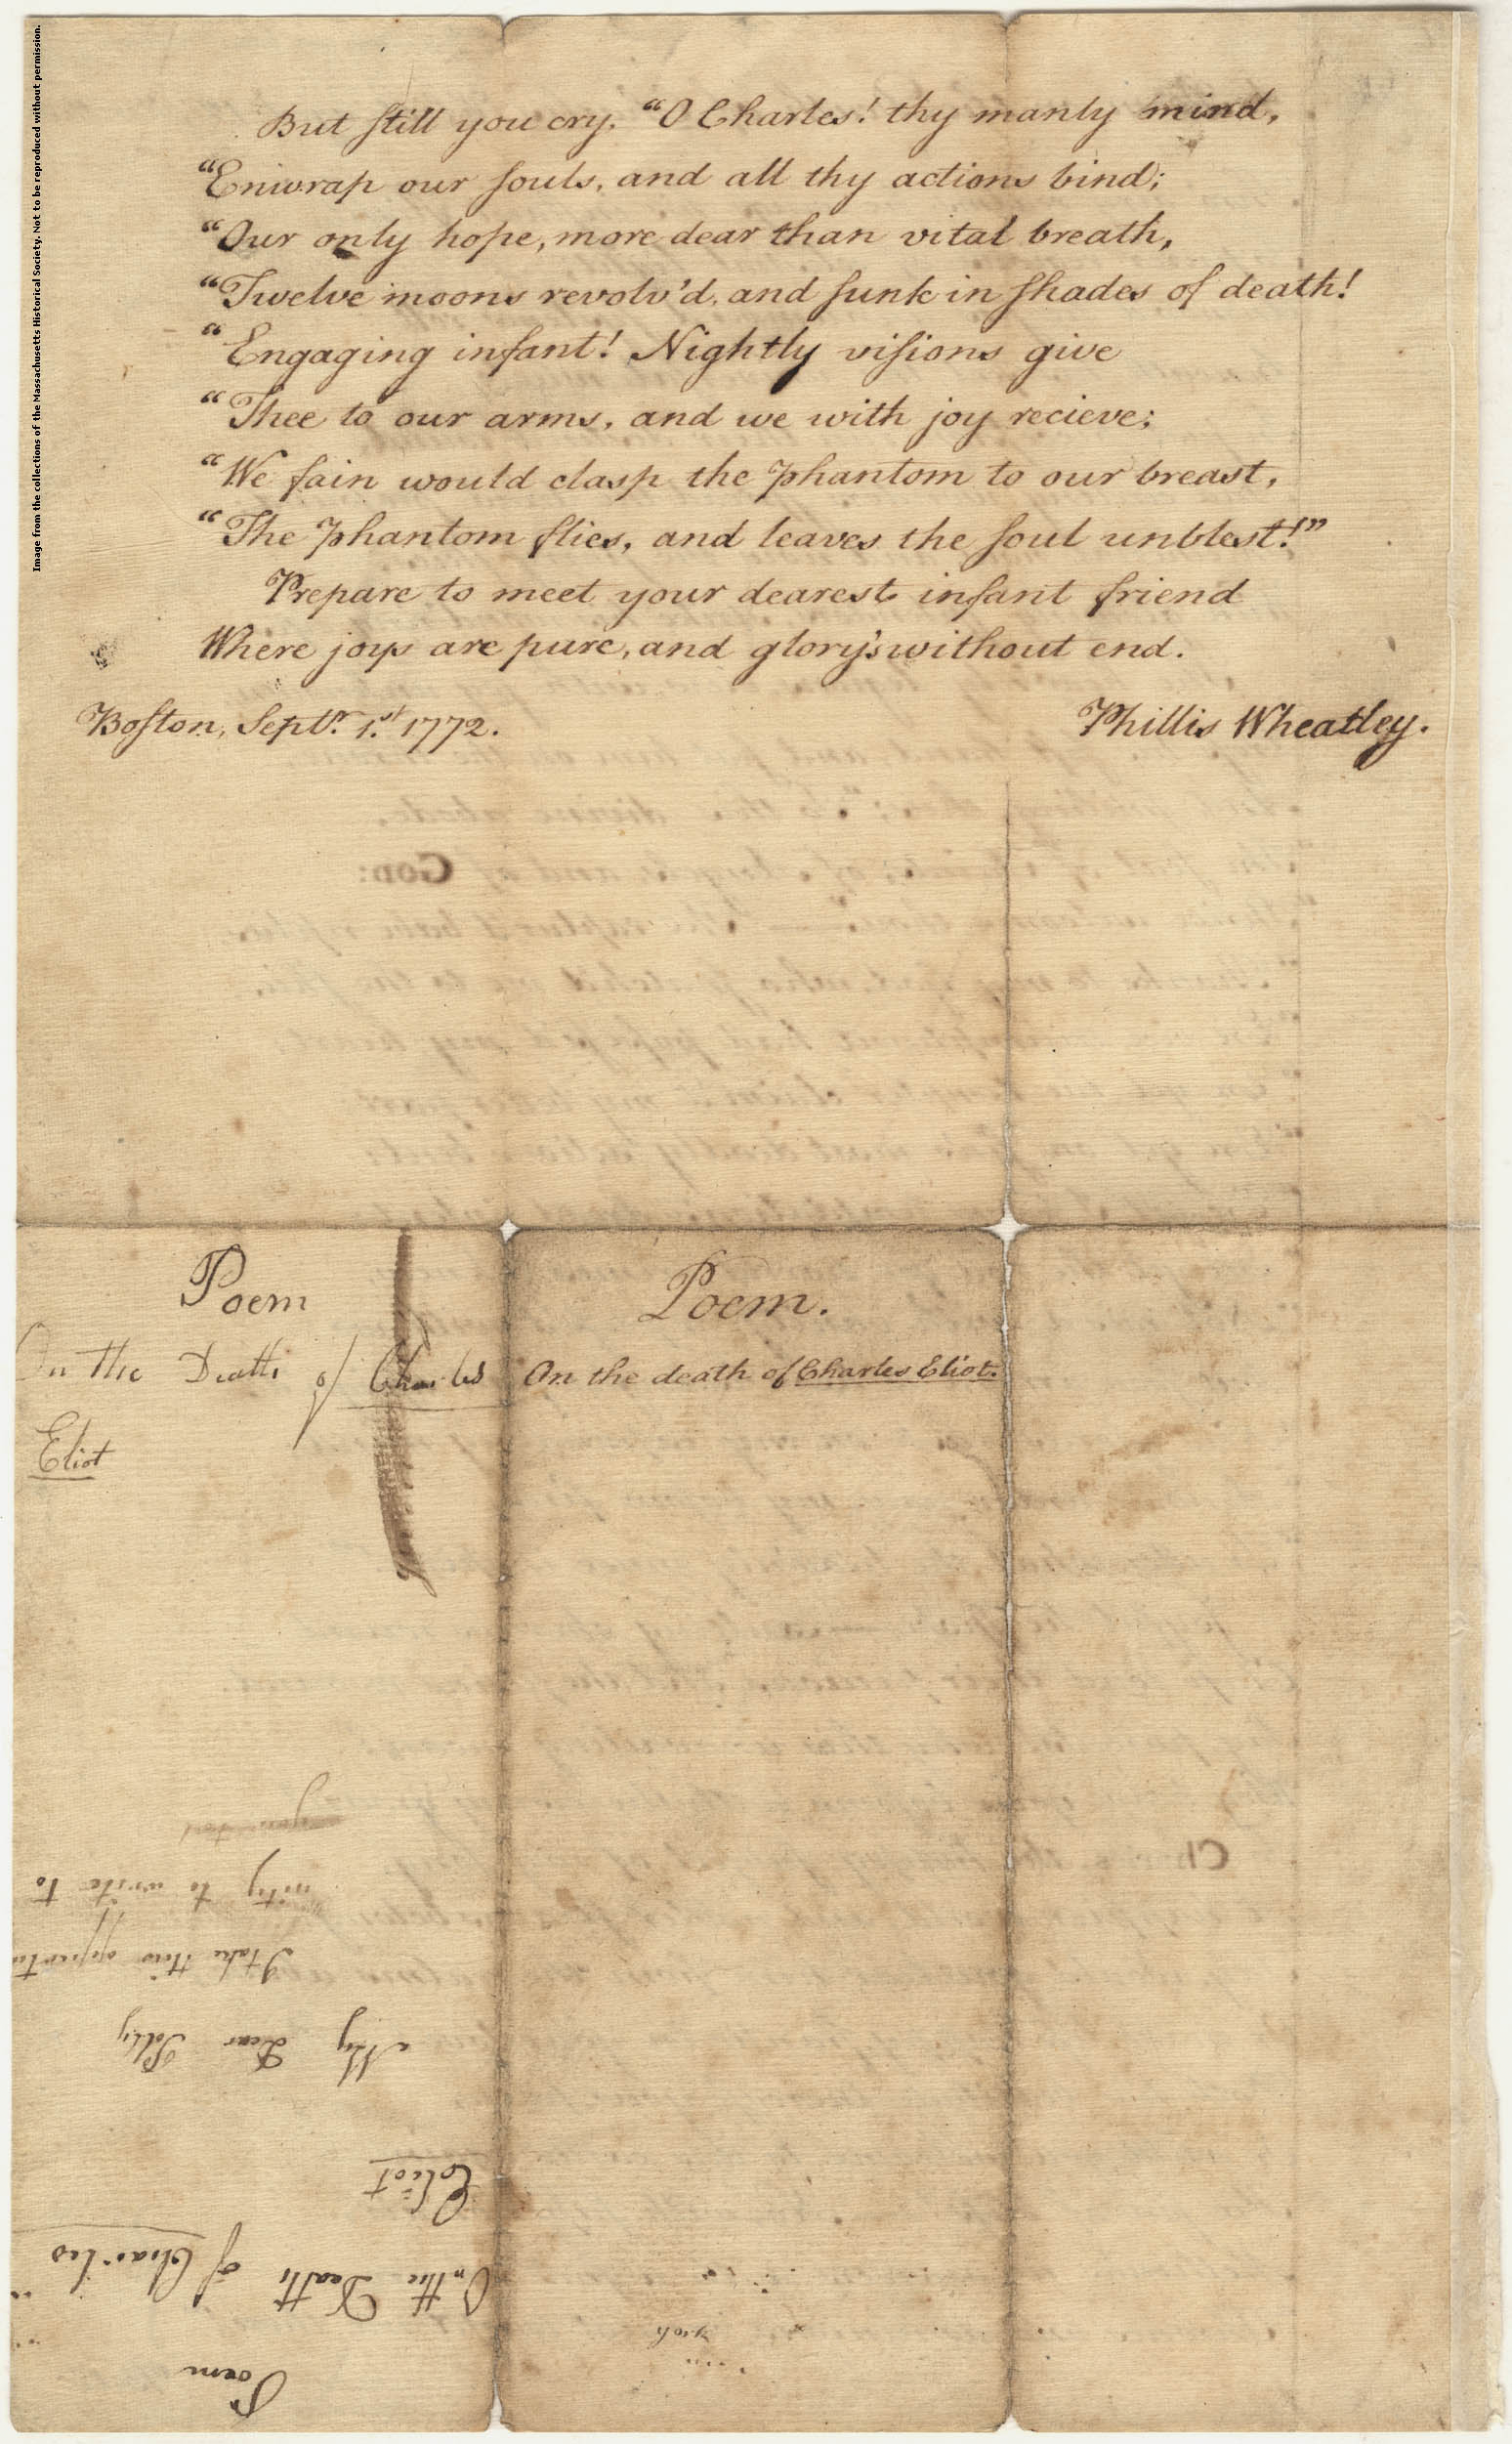 Image from the collections of the Massachusetts Historical Society. Not to be reproduced without permission.
But still you cry, "O Charles! thy manly mind,
"Enwrap our souls, and all thy actions bind;
"Our only hope, more dear than vital breath,
"Twelve moons revolv'd, and sunk in shades of death!
"Engaging infant! Nightly visions give
"Thee to our arms, and we with joy recieve;
"We fain would clasp the Phantom to our breast,
"The Phantom flies, and leaves the soul unblest!"
Prepare to meet your dearest infant friend
Where joys are pure, and glory's without end.
Boston, Septr. 1st. 1772.
Phillis Wheatley.
Poem
On the Death of Charles
Eliot
Poem.
On the death of Charles Eliot.
Poem
On the Death of Charles
Eliot
My Dear Polly
I take this opportu
nity to write to